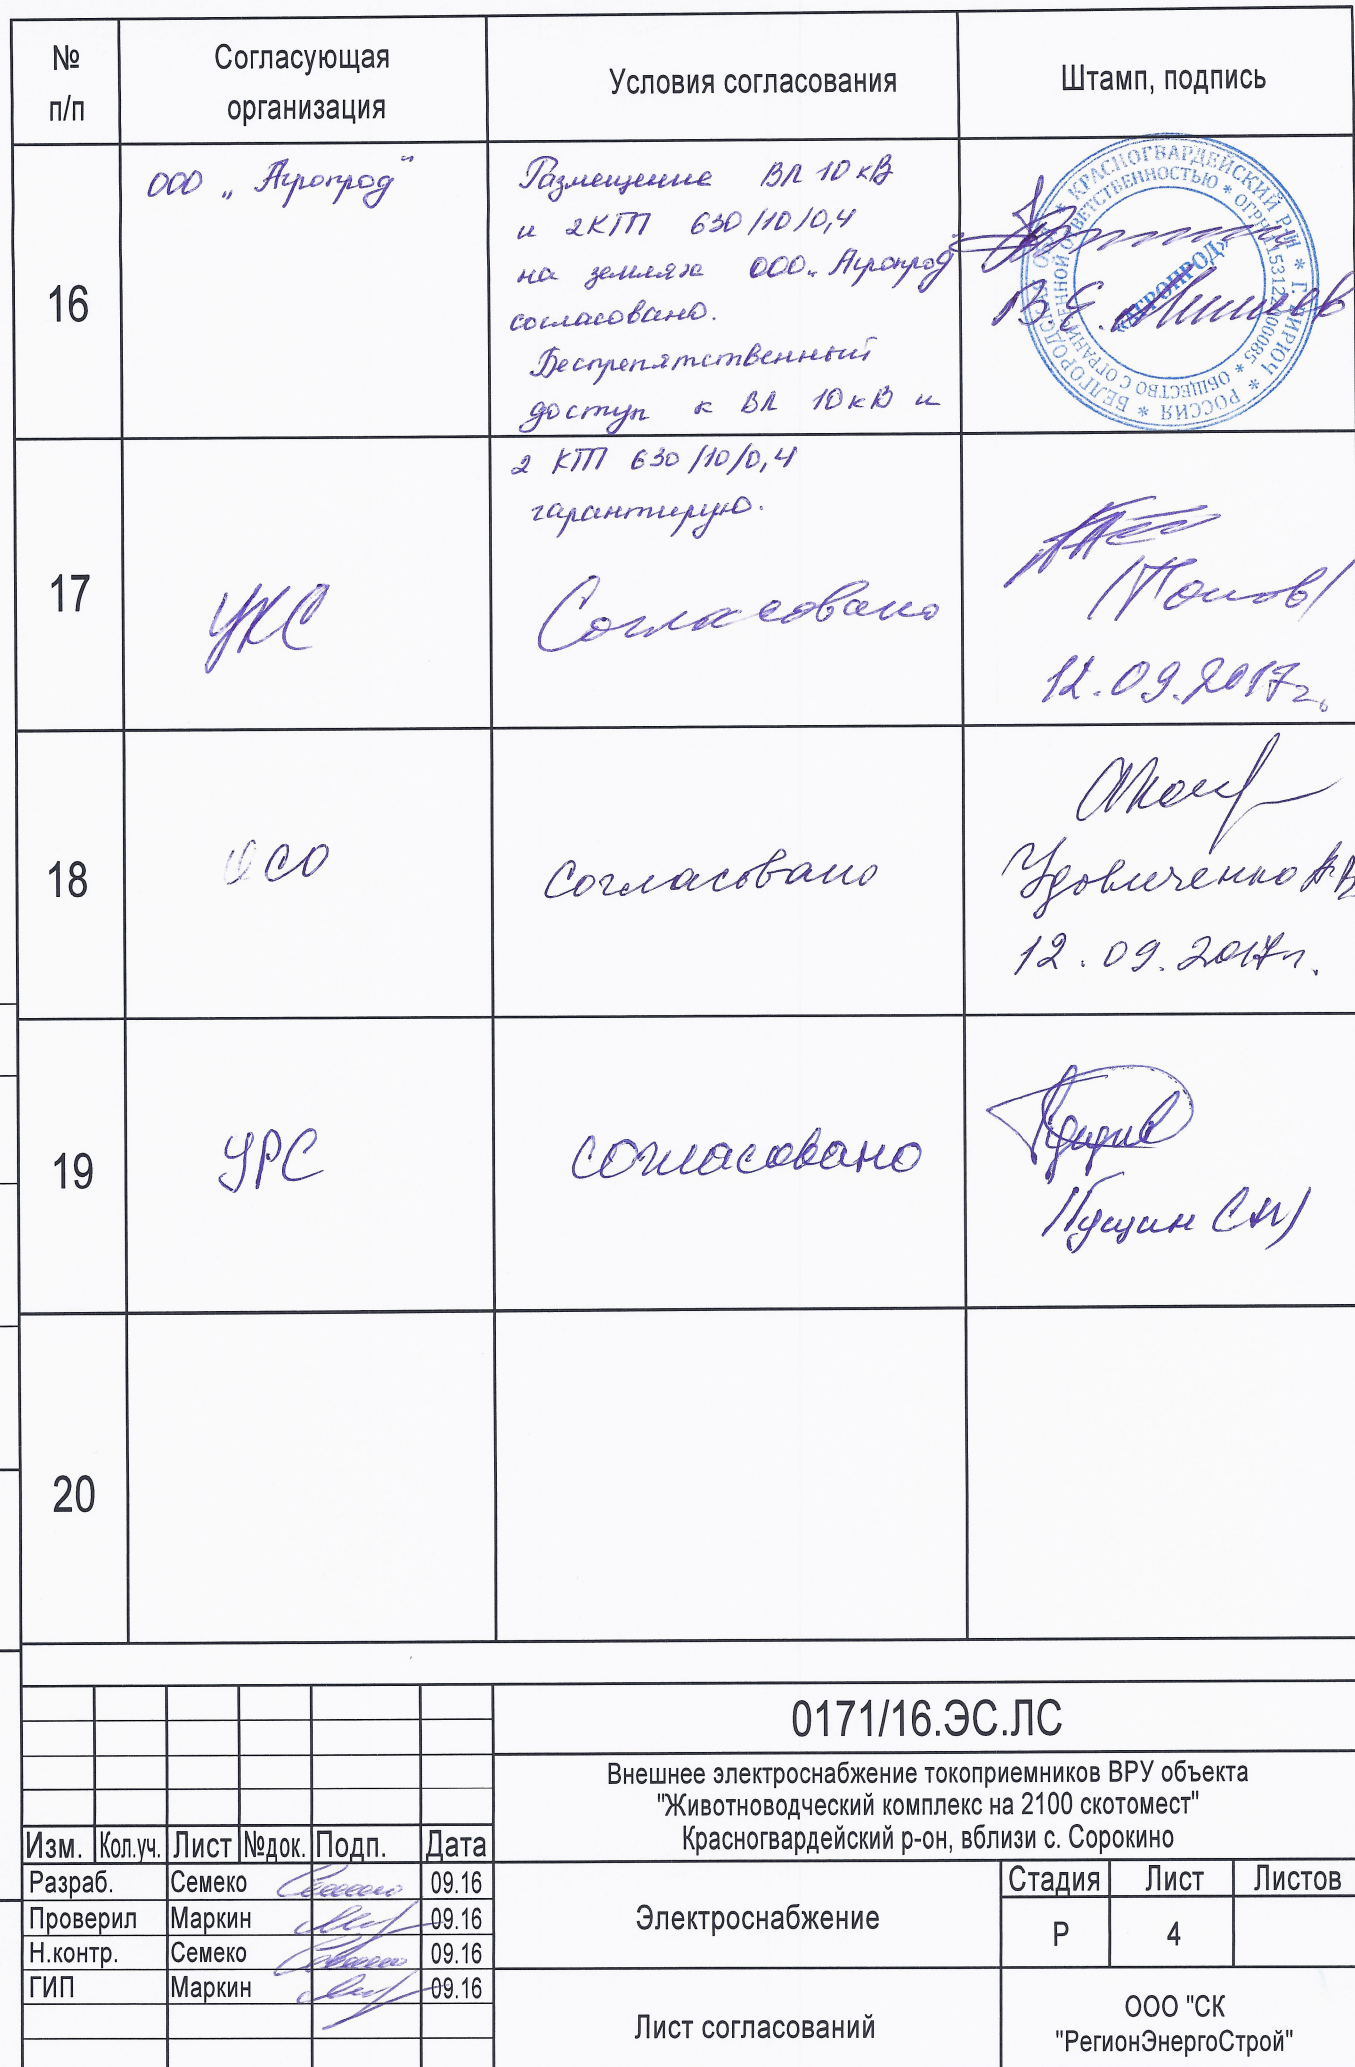 №
п/п
Согласующая
организация
Условия согласования
Штамп, подпись
16
ООО „Агропрод"
Размещение ВЛ 10 кВ
и 2КТП 630/10/0,4
на землях ООО „Агропрод"
согласовано.
Беспрепятственный
доступ к ВЛ 10кВ и
2 КТП 630/10/0,4
гарантирую.
* КРАСНОГВАРДЕЙСКИЙ Р-Н * Г. БИРЮЧ * РОССИЯ * БЕЛГОРОДСКАЯ ОБЛ.
ОБЩЕСТВО С ОГРАНИЧЕННОЙ ОТВЕТСТВЕННОСТЬЮ * ОГРН
«АГРОПРОД»
В.Е.
17
УКС
Согласовано
/Попов/
12.09.2017г.
18
ОСО
согласовано
Удовиченко
12.09.2017г.
19
УРС
согласовано
/Пущин
20
0171/16.ЭС.ЛС
Внешнее электроснабжение токоприемников ВРУ объекта
"Животноводческий комплекс на 2100 скотомест"
Красногвардейский р-он, вблизи с. Сорокино
Изм. Кол.уч. Лист №док. Подп. Дата
Разраб. Семеко 09.16
Проверил Маркин 09.16
Н.контр. Семеко 09.16
ГИП Маркин 09.16
Электроснабжение
Стадия Лист Листов
Р 4
Лист согласований
ООО "СК
"РегионЭнергоСтрой"